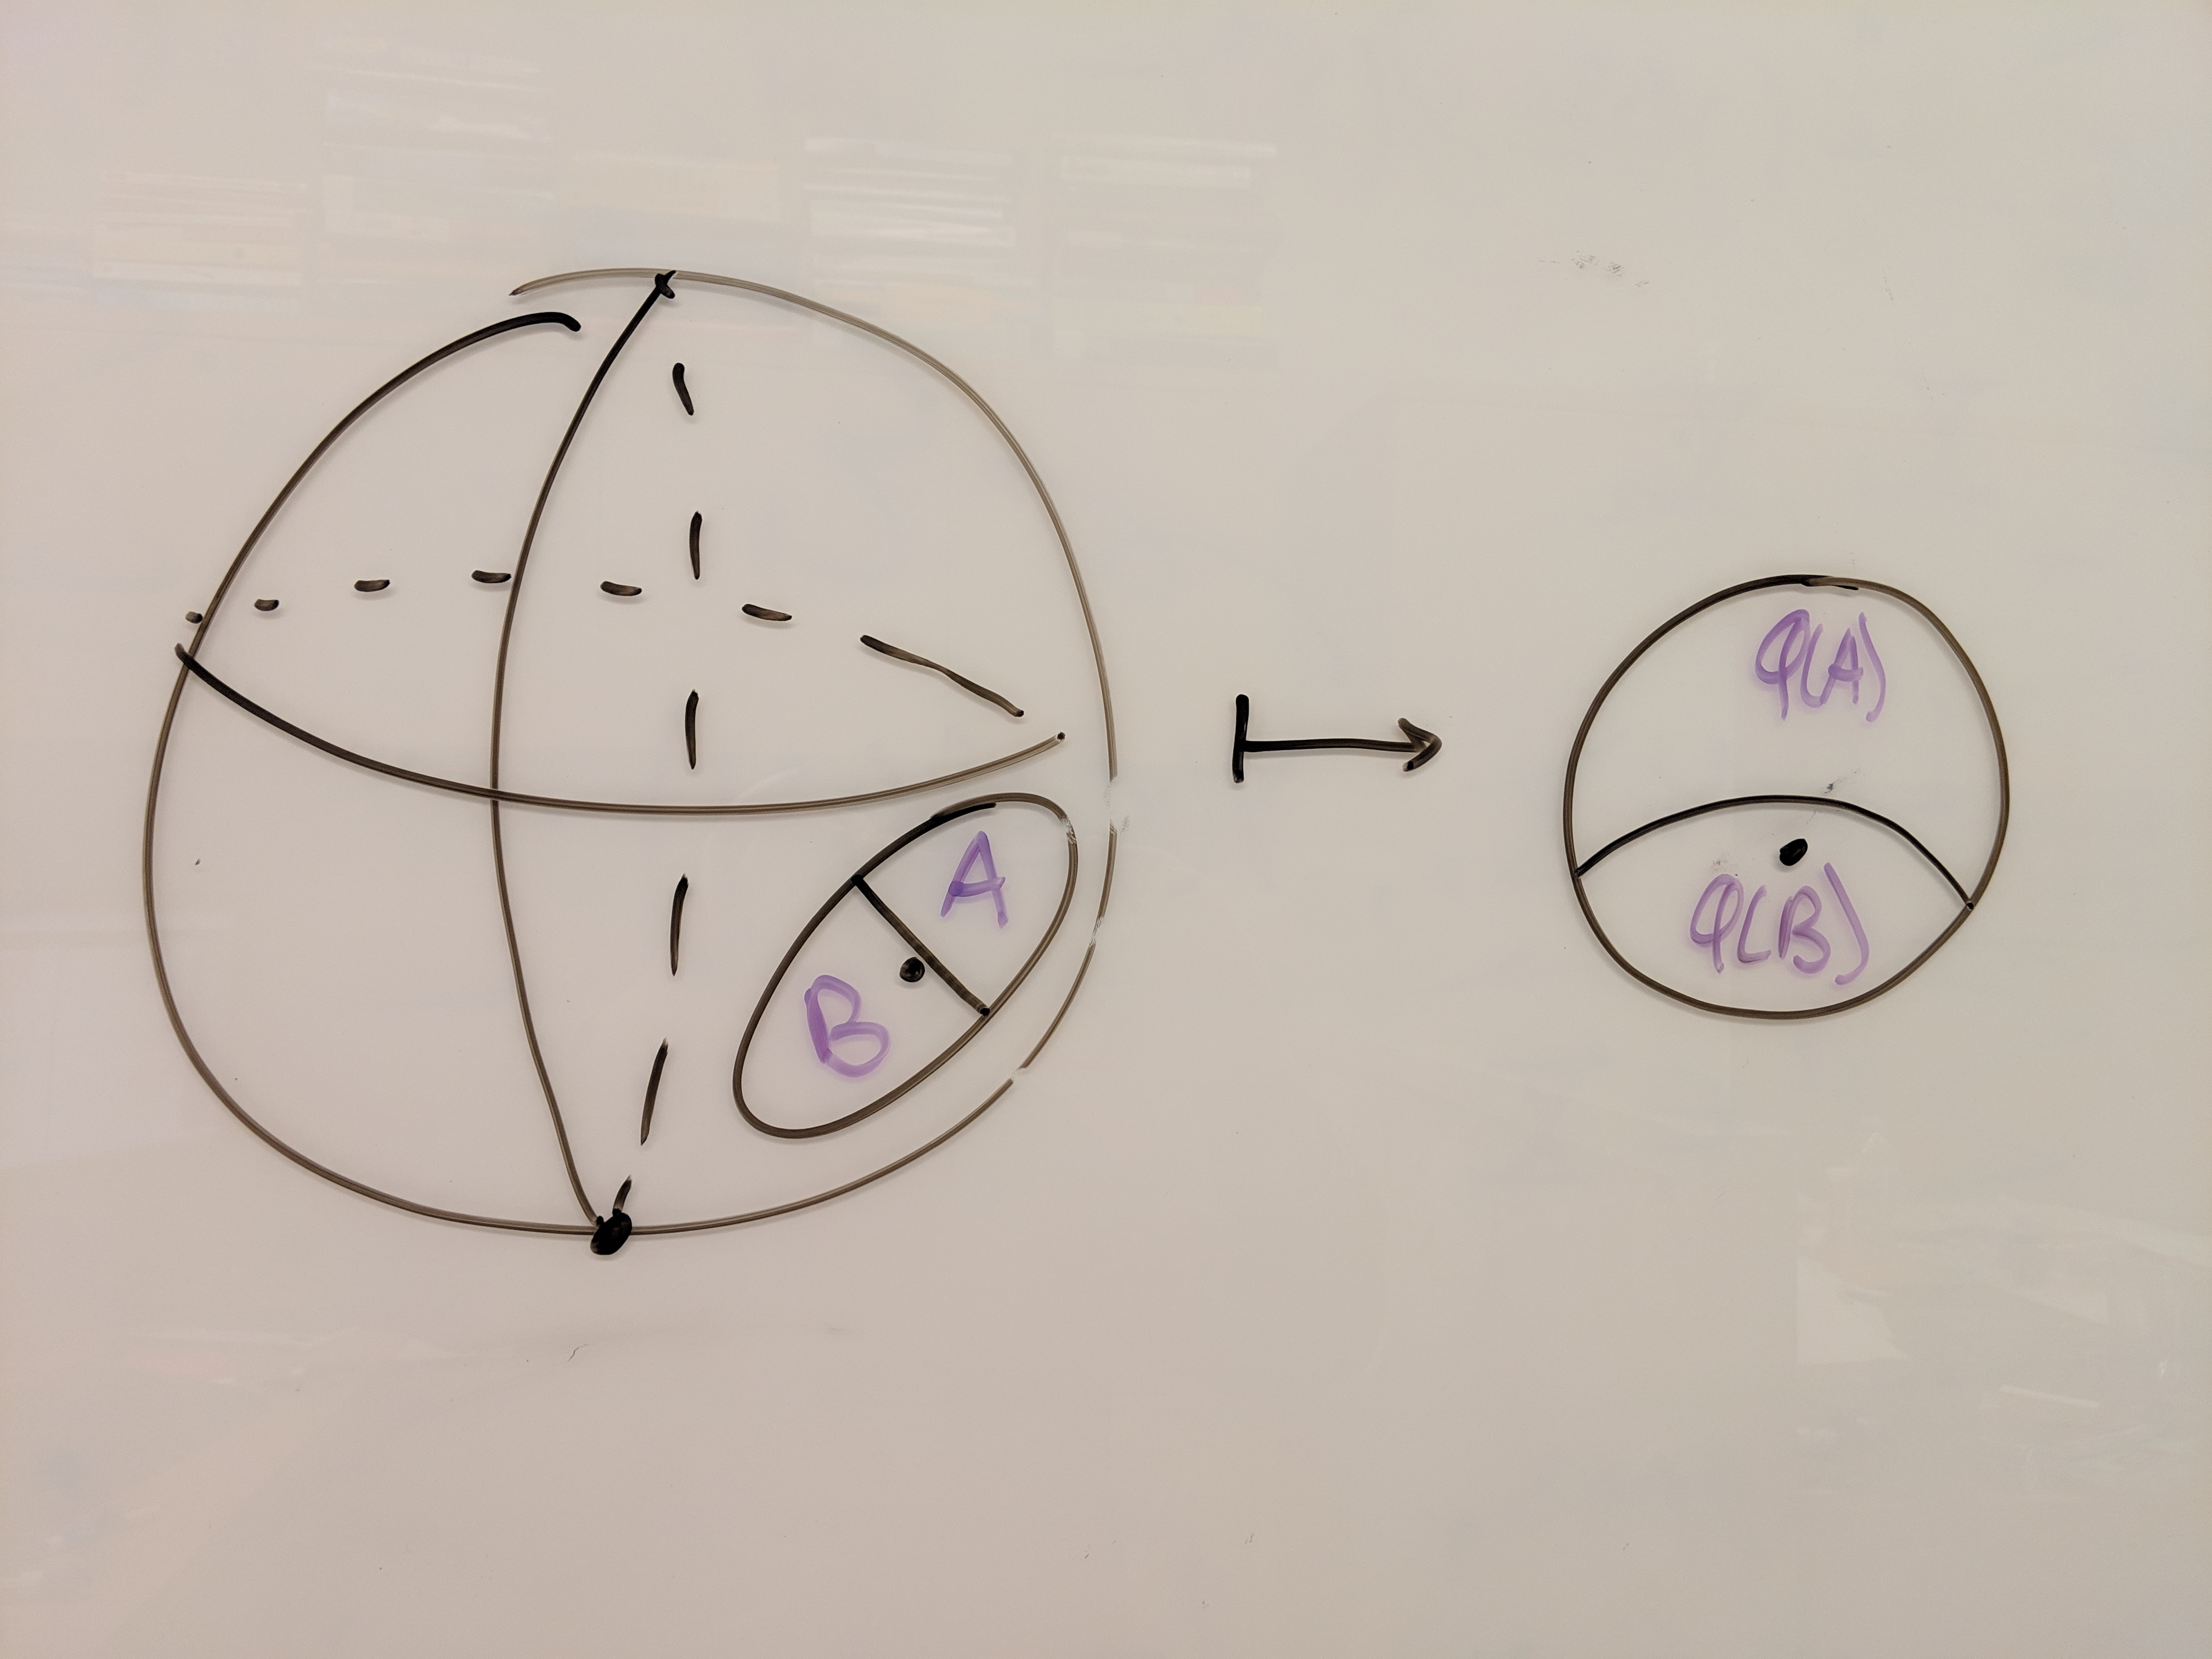 A
B
φ(A)
φ(B)